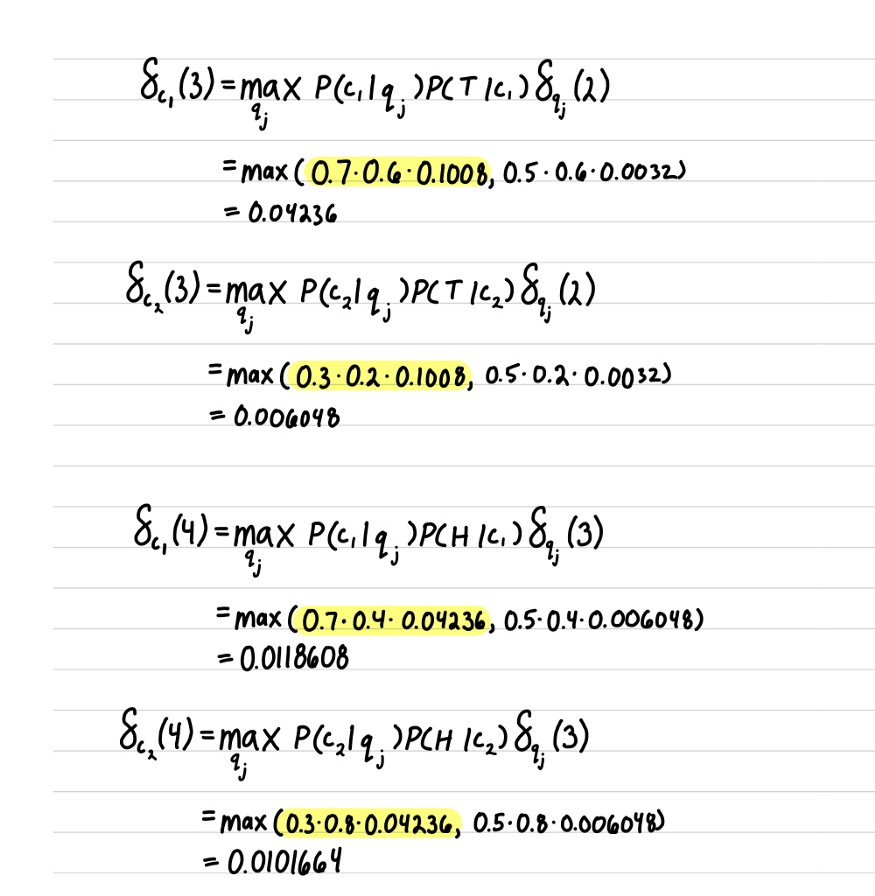 δ_{c_1}(3) = max_{q_j} P(c_1|q_j)P(T|c_1)δ_{q_j}(2)
= max(0.7·0.6·0.1008, 0.5·0.6·0.0032)
= 0.04236
δ_{c_2}(3) = max_{q_j} P(c_2|q_j)P(T|c_2)δ_{q_j}(2)
= max(0.3·0.2·0.1008, 0.5·0.2·0.0032)
= 0.006048
δ_{c_1}(4) = max_{q_j} P(c_1|q_j)P(H|c_1)δ_{q_j}(3)
= max(0.7·0.4·0.04236, 0.5·0.4·0.006048)
= 0.0118608
δ_{c_2}(4) = max_{q_j} P(c_2|q_j)P(H|c_2)δ_{q_j}(3)
= max(0.3·0.8·0.04236, 0.5·0.8·0.006048)
= 0.0101664